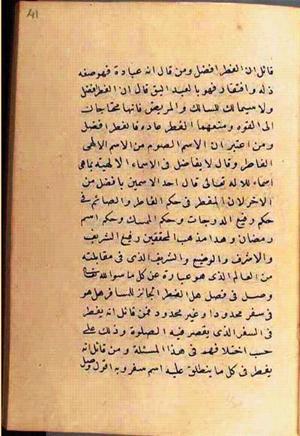 41
قائل ان الفطر افضل ومن قال انه عبادة فهو صفة
ذلة وافتقار فهو بالعبد اليق قال ان الفطر افضل
ولا سيما للسالك والمريض فانهما محتاجان
الى القوة ومنعهما الفطر عادة فالفطر افضل
ومن اعتبر ان الاسم الصوم من الاسم الالهى
الفاطر وقال لا يفاضل فى الاسماء الالهية بما هى
اسماء للاله تعالى قال احد الاسمين بافضل من
الاخر لان المفطر فى حكم الفاطر والصائم فى
حكم رفيع الدرجات وحكم الممسك وحكم اسم
رمضان وهذا مذهب المحققين رفيع الشريف
والاشرف والوضيع والشريف الذى فى مقابلته
من العالم الذى هو عبارة عن كل ما سوا الله
وصل فى فصل هل الفطر الجائز للمسافر هل هو
فى سفر محدود او غير محدود فمن قائل انه يفطر
فى السفر الذى يقصر فيه الصلوة وذلك على
حسب اختلافهم فى هذا المسئلة ومن قائل انه
يفطر فى كل ما ينطلق عليه اسم سفر وبه اقول وصل